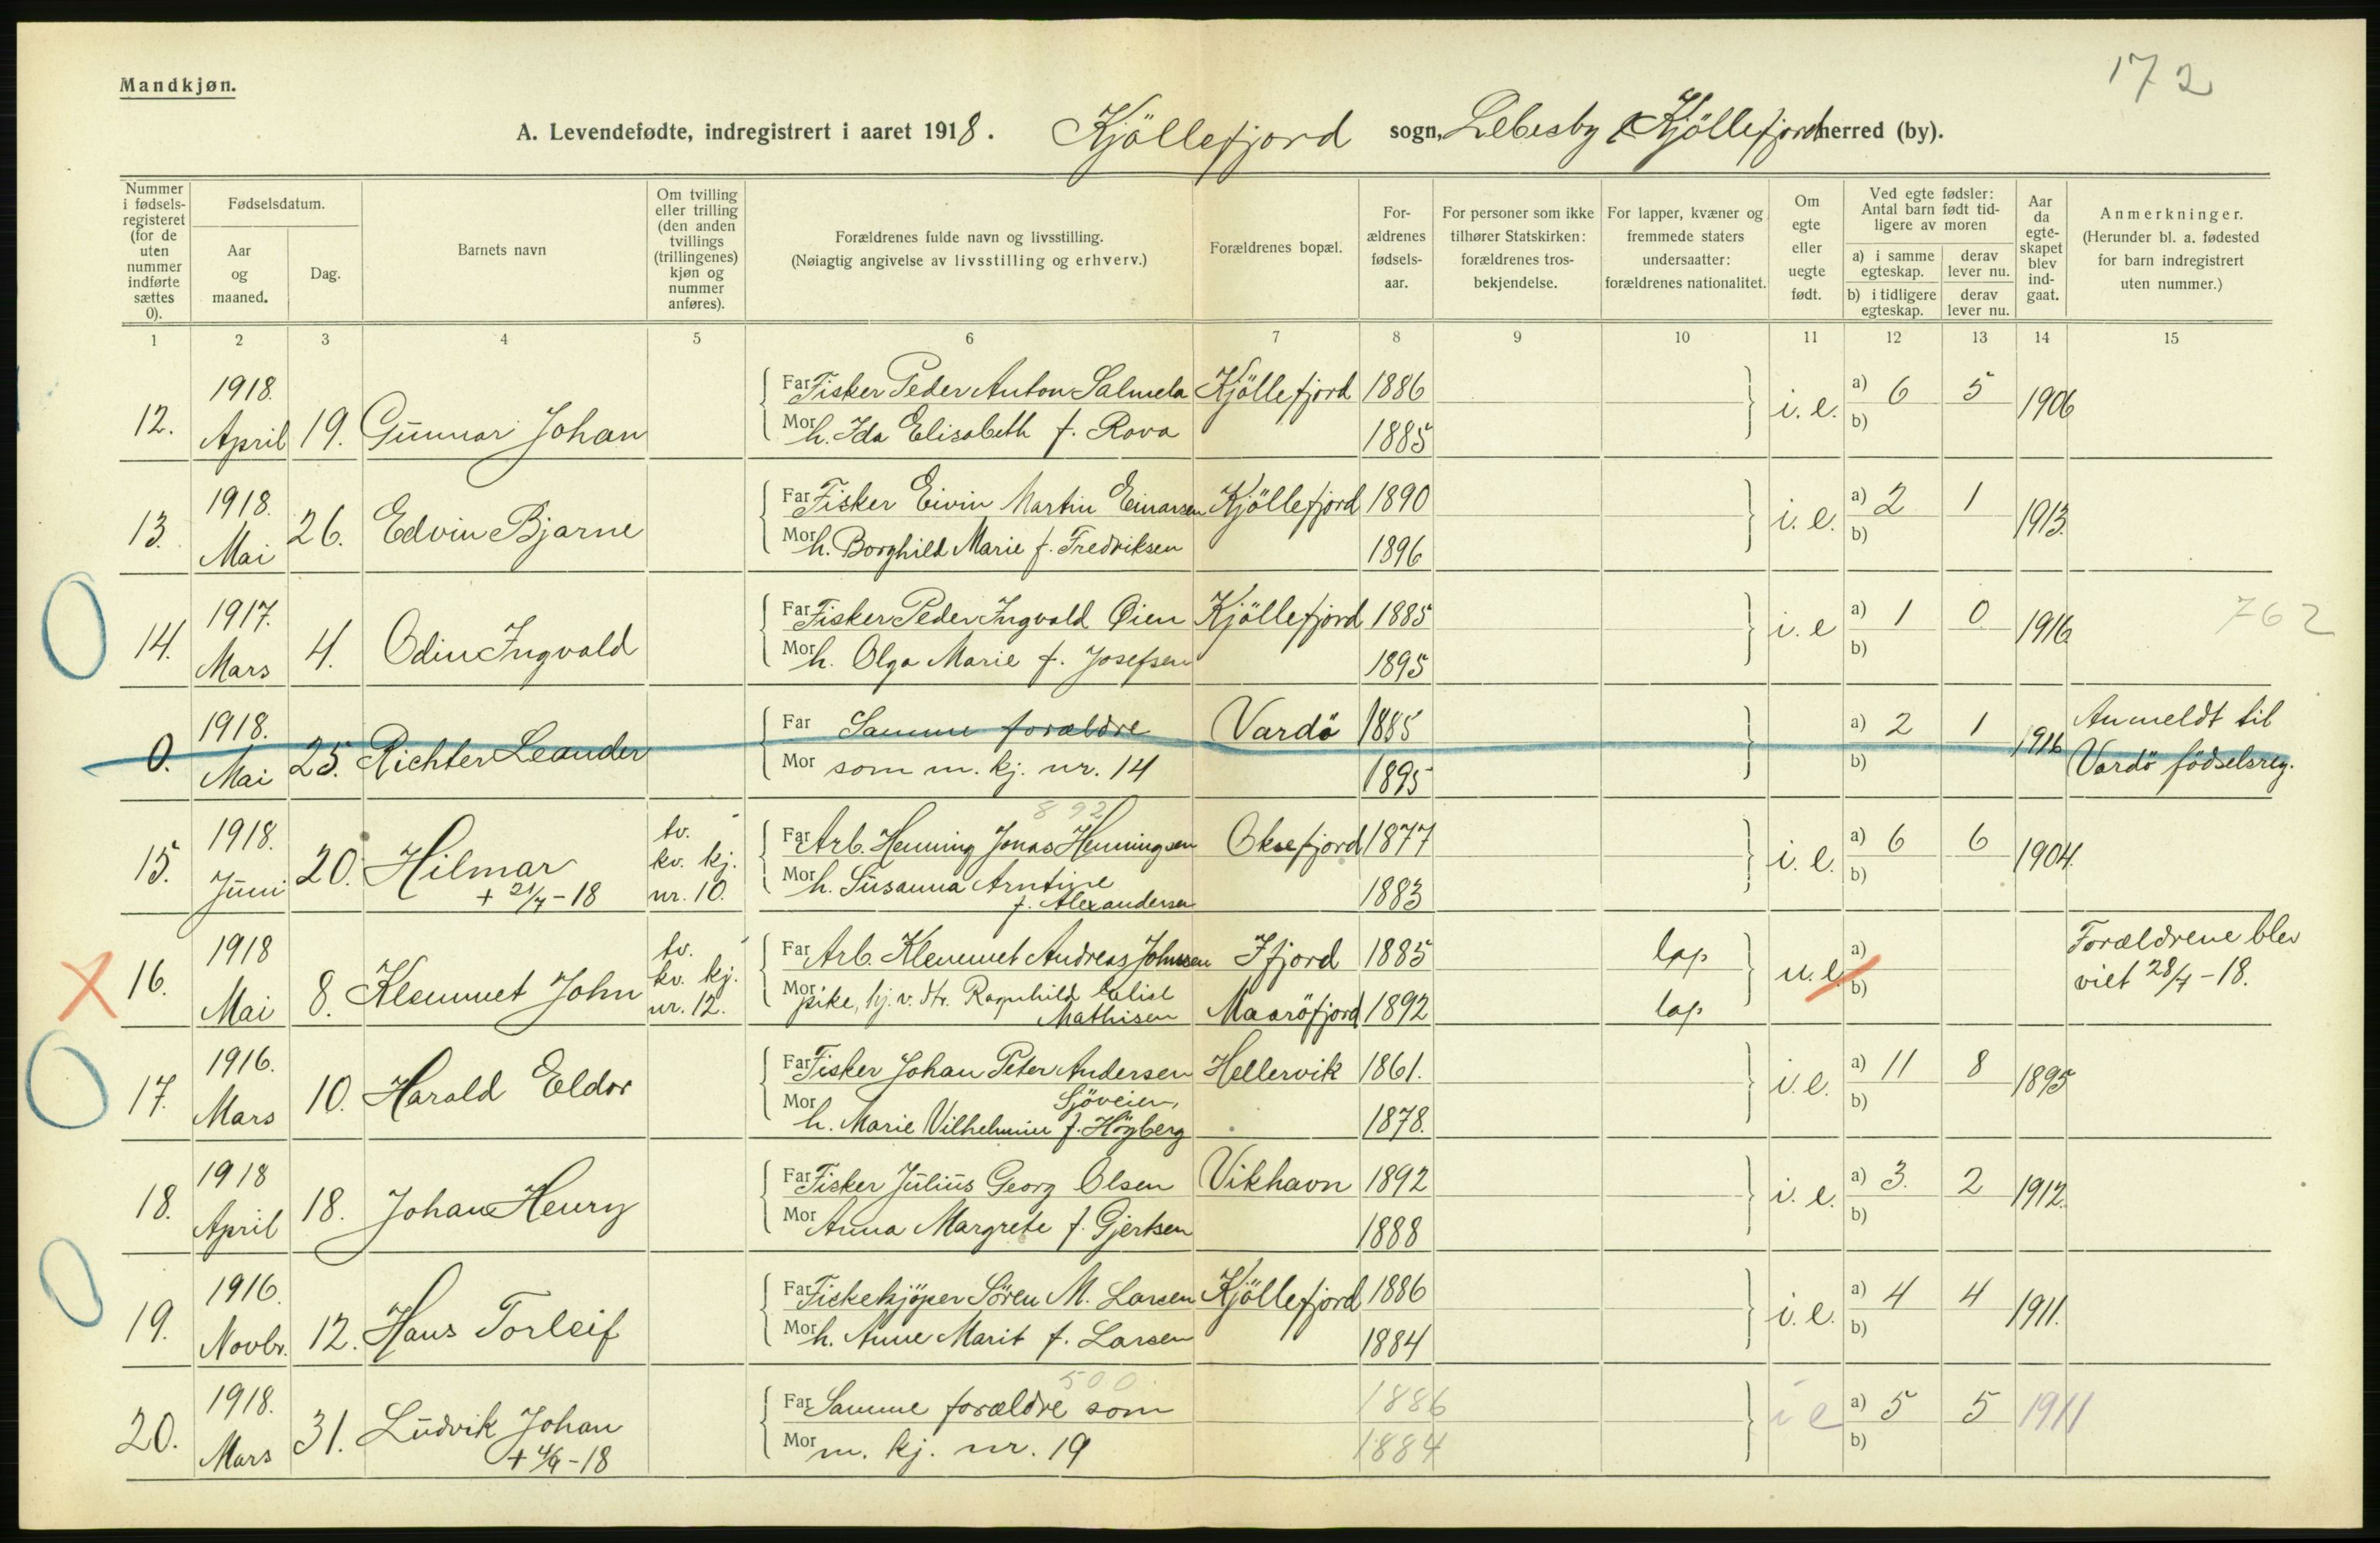 172
Mandkjøn.
A. Levendefødte, indregistrert i aaret 1918. Kjöllefjord sogn, Lebesby & Kjöllefjord herred (by).
Nummer i fødsels-registeret (for de uten nummer indførte sættes 0).
Fødselsdatum.
Aar og maaned.
Dag.
Barnets navn
Om tvilling eller trilling (den anden tvillings (trillingenes) kjøn og nummer anføres).
Forældrenes fulde navn og livsstilling.
(Nøiagtig angivelse av livsstilling og erhverv.)
Forældrenes bopæl.
For-ældrenes fødsels-aar.
For personer som ikke tilhører Statskirken: forældrenes tros-bekjendelse.
For lapper, kvæner og fremmede staters undersaatter: forældrenes nationalitet.
Om egte eller uegte født.
Ved egte fødsler: Antal barn født tid-ligere av moren
a) i samme egteskap. derav lever nu.
b) i tidligere egteskap. derav lever nu.
Aar da egte-skapet blev ind-gaat.
Anmerkninger.
(Herunder bl. a. fødested for barn indregistrert uten nummer.)
1 2 3 4 5 6 7 8 9 10 11 12 13 14 15
1918. Far Fisker Peder Anton Salmela Kjöllefjord 1886 a) 6 5
12. April 19. Gunnar Johan Mor h. Ida Elisabeth f. Rova 1885 i. e. b) 1906
1918. Far Fisker Eivin Martin Einarsen Kjöllefjord 1890 a) 2 1
13. Mai 26. Edvin Bjarne Mor h. Borghild Marie f. Fredriksen 1896 i. e. b) 1913.
1917. Far Fisker Peder Ingvald Øien Kjöllefjord 1885 a) 1 0 762
14. Mars 4. Odin Ingvald Mor h. Olga Marie f. Josefsen 1895 i. e b) 1916
1918. Far Samme forældre Vardö 1885 a) 2 1 Anmeldt til
0. Mai 25. Richter Leander Mor som m. kj. nr. 14 1895 b) 1916 Vardö födselsreg.
892
1918. tv. Far Arb. Henning Jonas Henningsen Oksefjord 1877 a) 6 6
15. Juni 20. Hilmar kv. kj. Mor h. Susanna Arntine 1883 i. e. b) 1904.
+ 21/7 - 18 nr. 10. f. Alexandersen
1918 tv. Far Arb. Klemmet Andreas Johnsen Ifjord 1885 lap a) Forældrene blev
16. Mai 8. Klemmet John kv. kj. Mor pike, hj. v. str. Ragnhild Elise Maaröfjord 1892 lap u. e. b) viet 28/7 - 18.
nr. 12. Mathisen
1916. Far Fisker Johan Peter Andersen Hellervik 1861. a) 11 8
17. Mars 10. Harald Eldor Mor Sjöveien, 1878. i. e. b) 1895
h. Marie Vilhelmine f. Högberg
1918 Far Fisker Julius Georg Olsen Vikhavn 1892 a) 3. 2
18. April 18. Johan Henry Mor Anna Margrete f. Gjertsen 1888 i. e. b) 1912.
1916. Far Fiskekjöper Sören M. Larsen Kjöllefjord 1886 a) 4 4
19. Novbr. 12. Hans Torleif Mor h. Anne Marit f. Larsen 1884 i. e. b) 1911.
500
1918. Far Samme forældre som 1886 a) 5 5
20. Mars 31. Ludvik Johan Mor m. kj. nr. 19 1884 i e b) 1911
+ 4/9 - 18